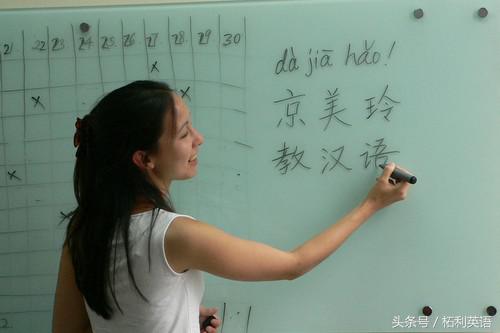 21 22 23 24 25 26 27 28 29 30
dà jiā hǎo!
京美玲
教汉语
头条号 / 柘利英语